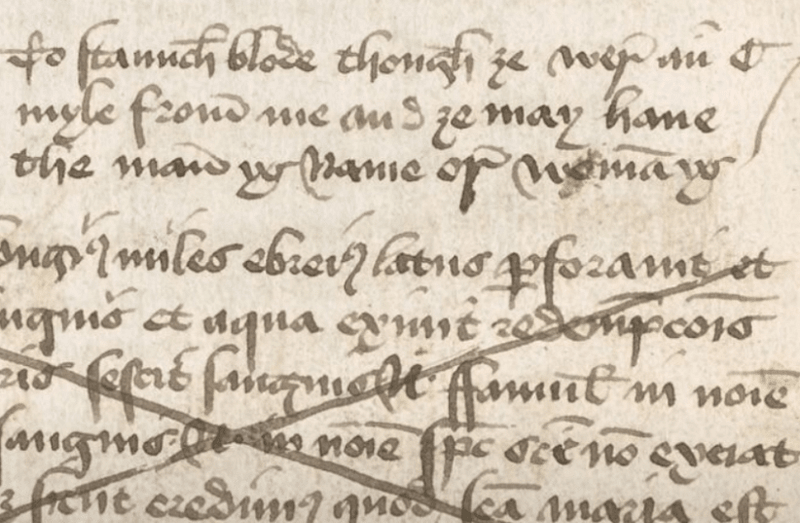 To staunch blode though ȝe wer an C
myle from me and ȝe may haue
the man ys Name or womā ys
longiꝰ miles ebreiꝰ latus ꝑforauit et
sanguis et aqua exiuit redempcōis
sanguis N ffamul in noīe
sanguis in noīe spc scē nō exeat
sicut credimꝰ quod scā maria est